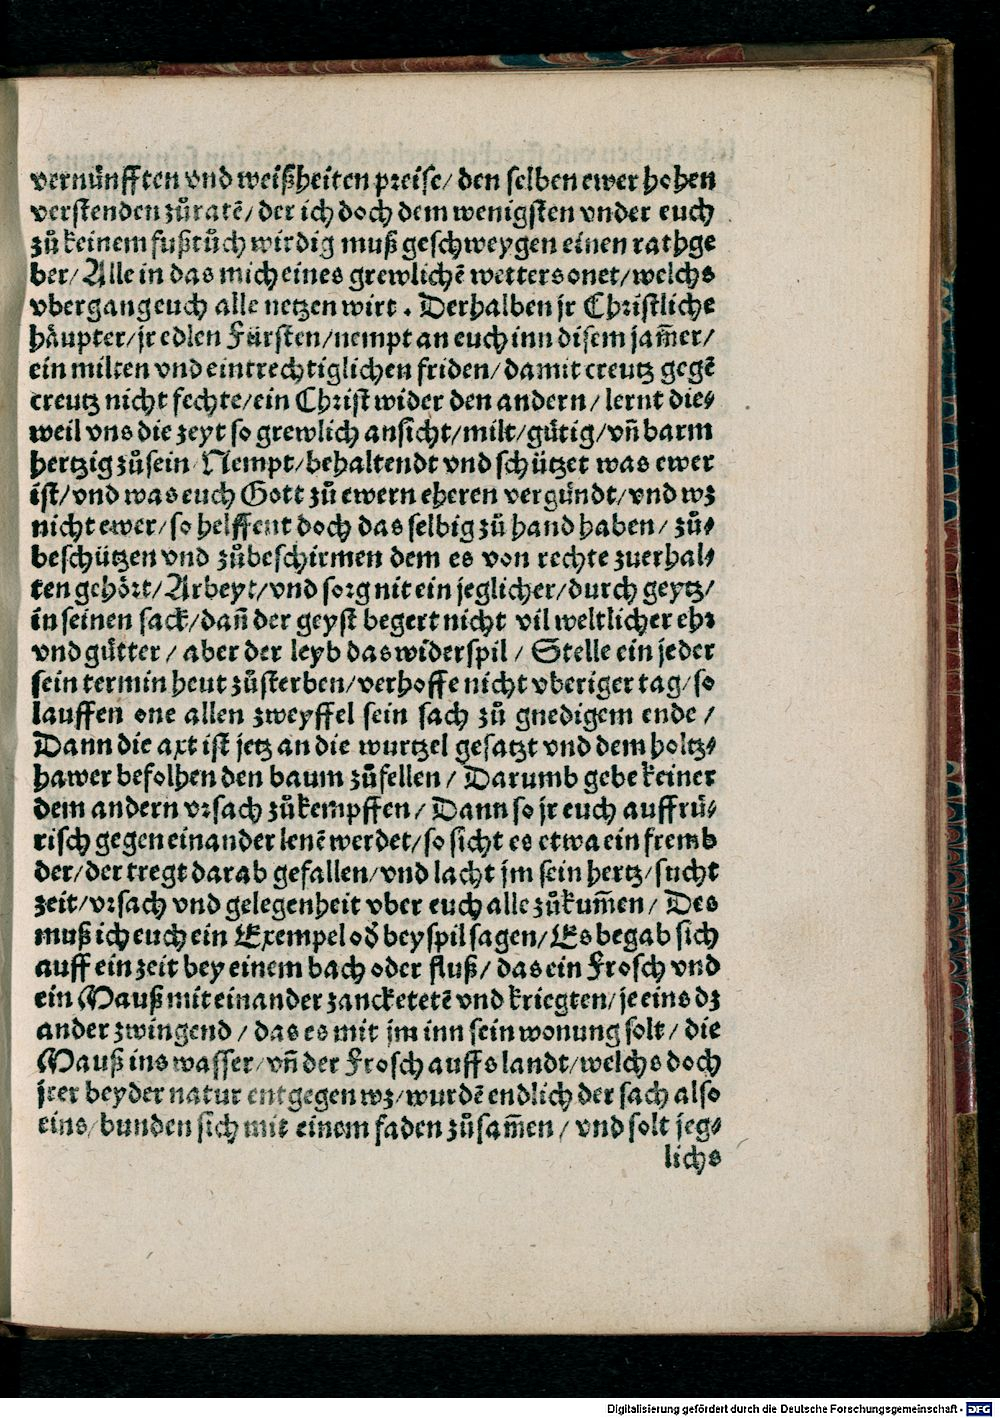 vernünfften vnd weißheiten preise/ den selben ewer hohen
verstenden zůratē/ der ich doch dem wenigsten vnder euch
zů keinem fußtůch wirdig muß geschweygen einen rathge
ber/ Alle in das mich eines grewlichē wetters onet/ welchs
vbergang euch alle netzen wirt. Derhalben jr Christliche
häupter/ jr edlen Fürsten/ nempt an euch inn disem jam̄er/
ein milten vnd eintrechtiglichen friden/ damit creutz gegē
creutz nicht fechte/ ein Christ wider den andern/ lernt die⸗
weil vns die zeyt so grewlich ansicht/ milt/ gütig/ vn̄ barm
hertzig zůsein/ Nempt/ behaltendt vnd schützet was ewer
ist/ vnd was euch Gott zů ewern eheren vergündt/ vnd wz
nicht ewer/ so helffent doch das selbig zů hand haben/ zů⸗
beschützen vnd zůbeschirmen dem es von rechte zuerhal⸗
ten gehört/ Arbeyt/ vnd sorg nit ein jeglicher/ durch geytz/
in seinen sack/ dan̄ der geyst begert nicht vil weltlicher ehr
vnd gütter/ aber der leyb das widerspil/ Stelle ein jeder
sein termin heut zůsterben/ verhoffe nicht vberiger tag/ so
lauffen one allen zweyffel sein sach zů gnedigem ende/
Dann die axt ist jetz an die wurtzel gesatzt vnd dem holtz⸗
hawer befolhen den baum zůfellen/ Darumb gebe keiner
dem andern vrsach zůkempffen/ Dann so jr euch auffrü⸗
risch gegen einander lenē werdet/ so sicht es etwa ein fremb
der/ der tregt darab gefallen/ vnd lacht jm sein hertz/ sucht
zeit/ vrsach vnd gelegenheit vber euch alle zůkum̄en/ Des
muß ich euch ein Exempel od̄ beyspil sagen/ Es begab sich
auff ein zeit bey einem bach oder fluß/ das ein Frosch vnd
ein Mauß mit einander zancketetē vnd kriegten/ je eins dz
ander zwingend/ das es mit jm inn sein wonung solt/ die
Mauß ins wasser/ vn̄ der Frosch auffs landt/ welchs doch
jrer beyder natur entgegen wz/ wurdē endlich der sach also
eins/ bunden sich mit einem faden zůsam̄en/ vnd solt jeg⸗
lichs
Digitalisierung gefördert durch die Deutsche Forschungsgemeinschaft - DFG